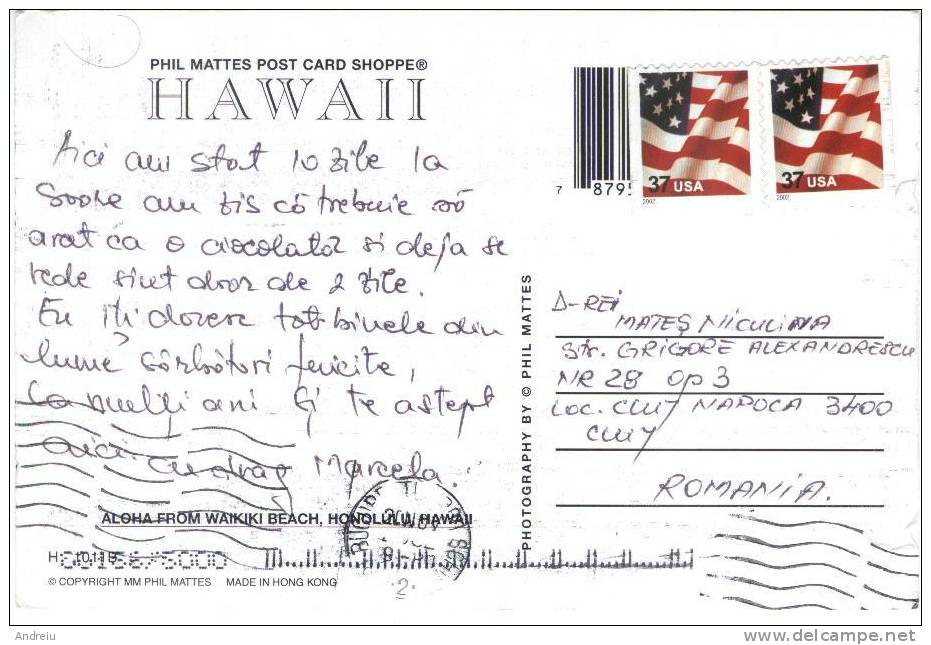 PHIL MATTES POST CARD SHOPPE®
HAWAII
Aici am stat 10 zile la
Soare am zis că trebuie să
arat ca o ciocolată si deja se
vede sint doar de 2 zile.
Eu iți doresc tot binele din
lume sărbători fericite,
La mulți ani și te astept
aici cu drag Marcela.
ALOHA FROM WAIKIKI BEACH, HONOLULU, HAWAII
© COPYRIGHT MM PHIL MATTES MADE IN HONG KONG
PHOTOGRAPHY BY © PHIL MATTES
7 8795
37 USA
2002
37 USA
2002
D-REI
MATEȘ NICULINA
Str. GRIGORE ALEXANDRESCU
NR 28 ap 3
Loc. CLUJ NAPOCA 3400
CLUJ
ROMANIA.
Andreiu
www.delcampe.net